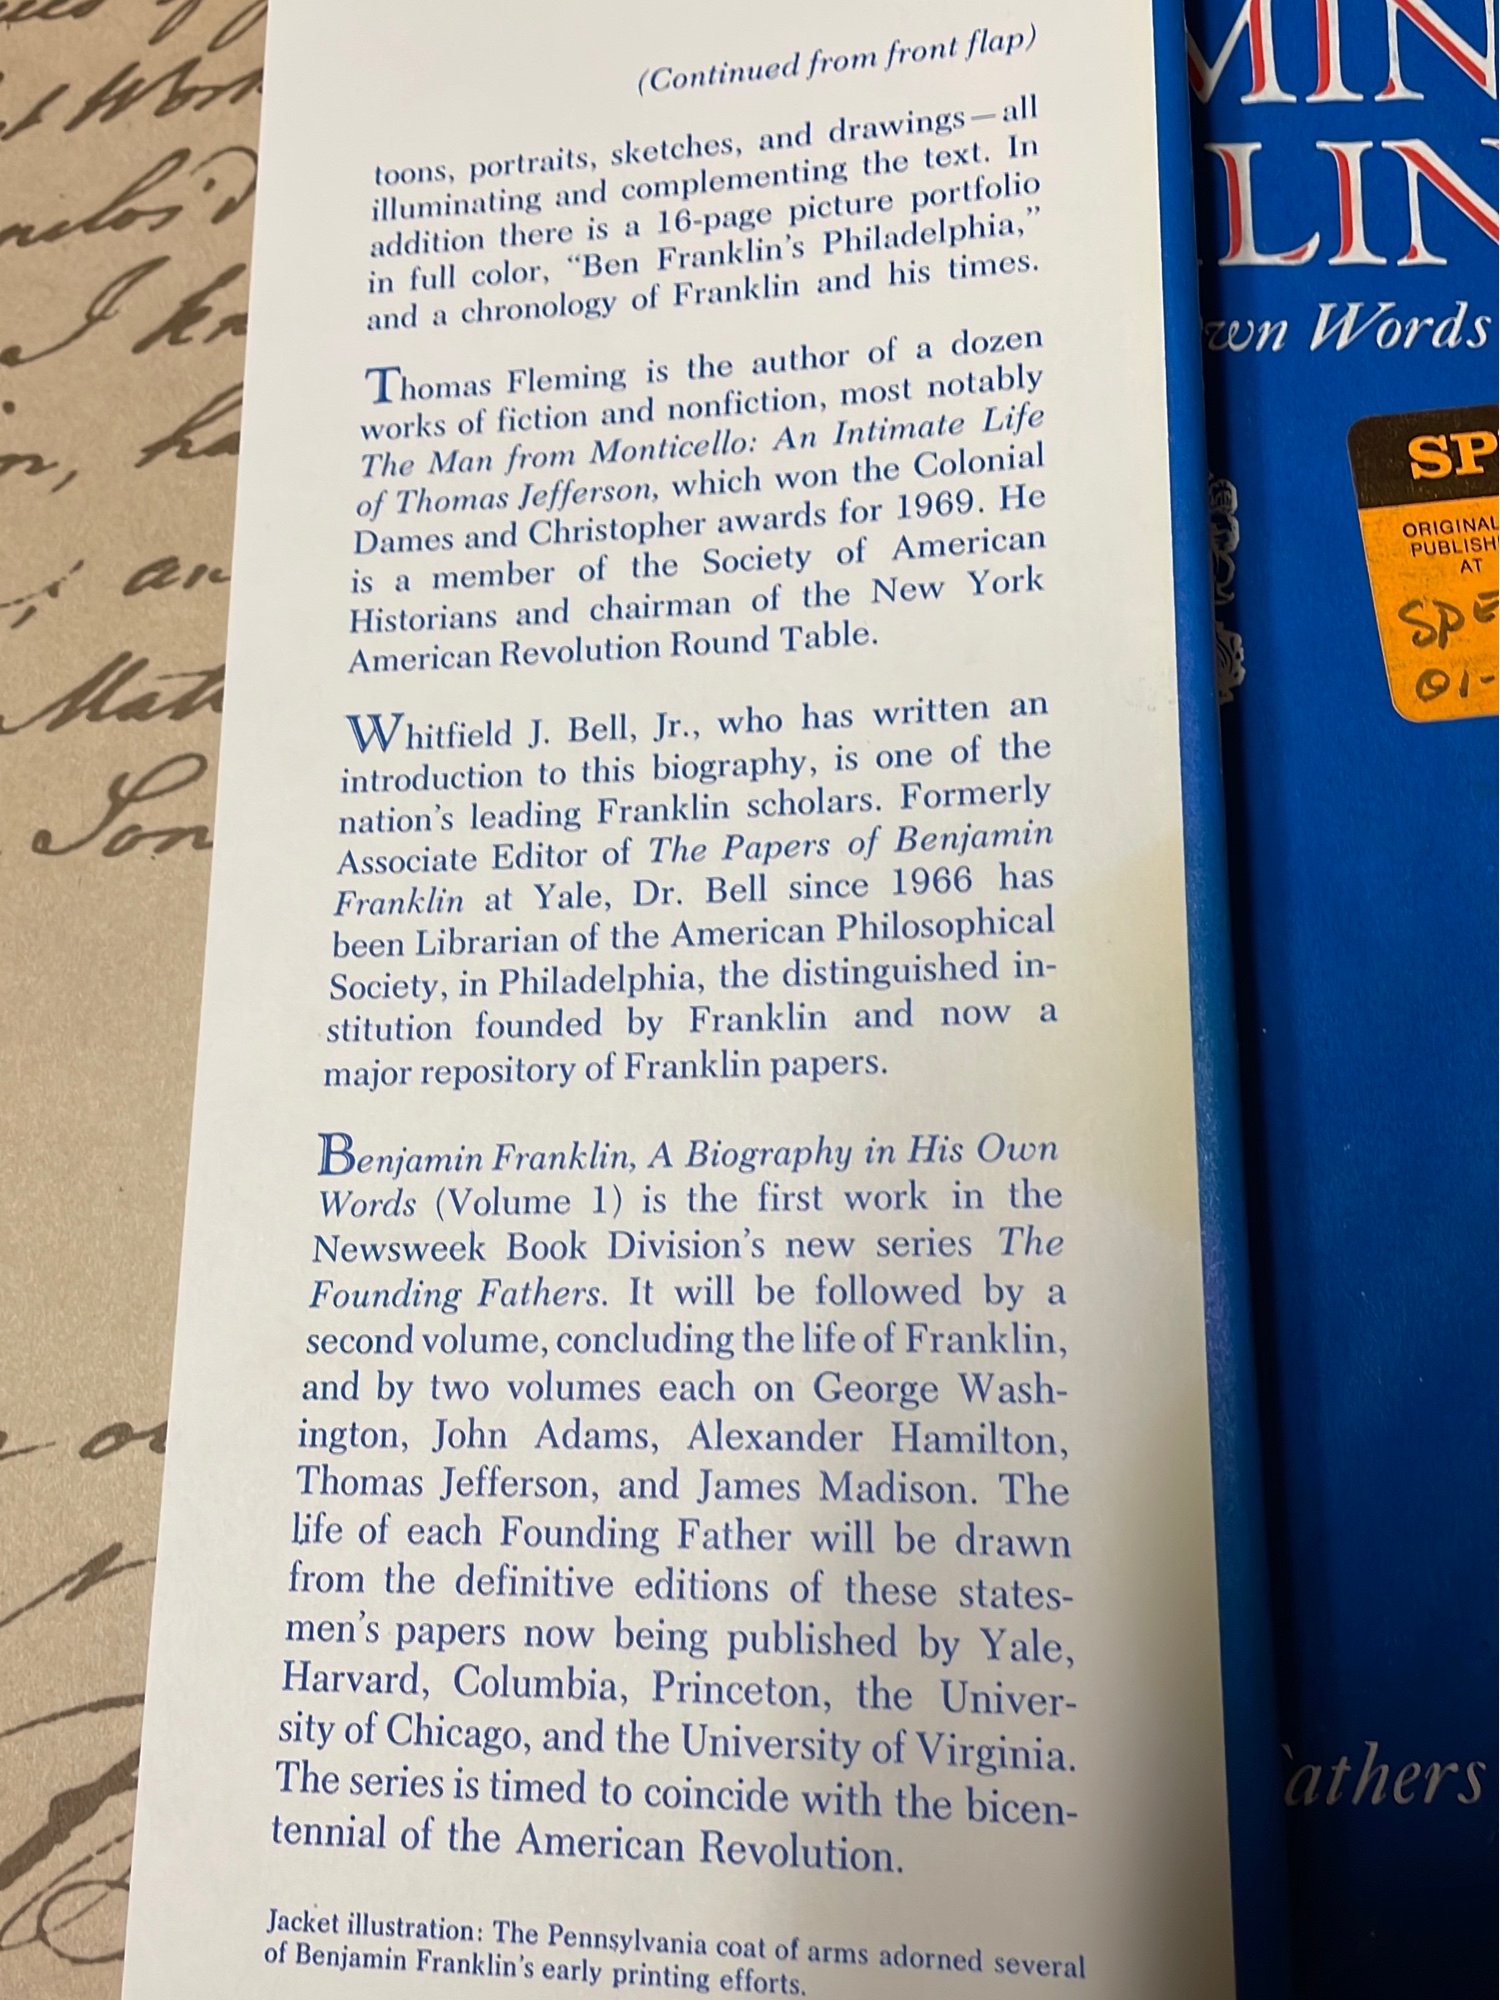 (Continued from front flap)
toons, portraits, sketches, and drawings—all
illuminating and complementing the text. In
addition there is a 16-page picture portfolio
in full color, “Ben Franklin’s Philadelphia,”
and a chronology of Franklin and his times.
Thomas Fleming is the author of a dozen
works of fiction and nonfiction, most notably
The Man from Monticello: An Intimate Life
of Thomas Jefferson, which won the Colonial
Dames and Christopher awards for 1969. He
is a member of the Society of American
Historians and chairman of the New York
American Revolution Round Table.
Whitfield J. Bell, Jr., who has written an
introduction to this biography, is one of the
nation’s leading Franklin scholars. Formerly
Associate Editor of The Papers of Benjamin
Franklin at Yale, Dr. Bell since 1966 has
been Librarian of the American Philosophical
Society, in Philadelphia, the distinguished in-
stitution founded by Franklin and now a
major repository of Franklin papers.
Benjamin Franklin, A Biography in His Own
Words (Volume 1) is the first work in the
Newsweek Book Division’s new series The
Founding Fathers. It will be followed by a
second volume, concluding the life of Franklin,
and by two volumes each on George Wash-
ington, John Adams, Alexander Hamilton,
Thomas Jefferson, and James Madison. The
life of each Founding Father will be drawn
from the definitive editions of these states-
men’s papers now being published by Yale,
Harvard, Columbia, Princeton, the Univer-
sity of Chicago, and the University of Virginia.
The series is timed to coincide with the bicen-
tennial of the American Revolution.
Jacket illustration: The Pennsylvania coat of arms adorned several
of Benjamin Franklin’s early printing efforts.
MIN
LIN
wn Words
SP
ORIGINAL
PUBLISH
AT
SPE
01-
athers
I kn
an
Son